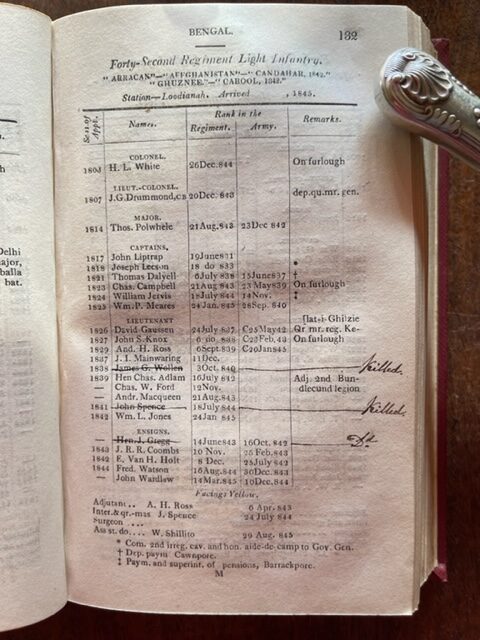 BENGAL.
132
Forty-Second Regiment Light Infantry.
"ARRACAN"—"AFFGHANISTAN"—"CANDAHAR, 1842."
"GHUZNEE."—"CABOOL, 1842."
Station—Loodianah. Arrived , 1845.
Names. Rank in the Remarks.
Regiment. Army.
COLONEL.
1803 H. L. White 26Dec.844 On furlough
LIEUT.-COLONEL.
1807 J.G.Drummond,CB 20Dec. 843 dep.qu.mr. gen.
MAJOR.
1814 Thos. Polwhele 21Aug.843 23Dec 842
CAPTAINS,
1817 John Liptrap 19June831
1818 Joseph Leeson 18 do 833 *
1821 Thomas Dalyell 6July 838 15June837 †
1823 Chas. Campbell 21Aug 843 23May839 On furlough
1824 William Jervis 18July 844 14Nov. ‡
1825 Wm. P. Meares 24Jan. 845 28Sep. 840
LIEUTENANT [lat-i-Ghilzie
1826 David Gaussen 24July 837 C25May42 Qr mr.reg. Ke-
1827 John S. Knox 6 do. 838 C23Feb.43 On furlough
1829 And. H. Ross 6Sept.839 C20Jan845
1837 J. I. Mainwaring 11Dec.
1838 James G. Wollen 3Oct. 840 Killed.
1839 Hen Chas. Adlam 16July 842 Adj. 2nd Bun-
— Chas. W. Ford 12Nov. dlecund legion
— Andr. Macqueen 21Aug.843
1841 John Spence 18July 844 Killed.
1842 Wm. L. Jones 24Jan 845
ENSIGNS,
— Hen. J. Gregg 14June843 16Oct. 842
1843 J. R. R. Coombs 10 Nov. 25 Feb.843
1842 E. Van H. Holt 8 Dec. 25July 842
1844 Fred. Watson 16Aug.844 30Dec. 843
— John Wardlaw 14Mar.845 10Dec.844
Facings Yellow.
Adjutant .. A. H. Ross 6 Apr. 843
Inter.&qr.-mas J. Spence 24 July 844
Surgeon ....
Asst. do.... W. Shillito 29 Aug. 845
* Com. 2nd irreg. cav. and hon. aide-de-camp to Gov. Gen.
† Dep. paym Cawnpore.
‡ Paym. and superint. of pensions, Barrackpore.
M
Delhi
major,
balla
bat.